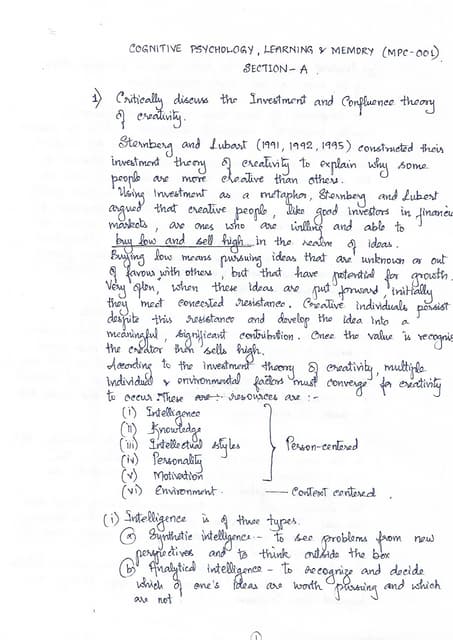 COGNITIVE PSYCHOLOGY, LEARNING & MEMORY (MPC-001)
SECTION-A
1) Critically discuss the Investment and Confluence theory
of creativity.
Sternberg and Lubart (1991, 1992, 1995) constructed their
investment theory of creativity to explain why some
people are more creative than others.
Using investment as a metaphor, Sternberg and Lubart
argued that creative people, like good investors in financia
markets, are ones who are willing and able to
buy low and sell high in the realm of ideas.
Buying low means pursuing ideas that are unknown or out
of favour with others, but that have potential for growth.
Very often, when these ideas are put forward, initially
they meet concerted resistance. Creative individuals persist
despite this resistance and develop the idea into a
meaningful, significant contribution. Once the value is recognis
the creator then sells high.
According to the investment theory of creativity, multiple
individual & environmental factors must converge for creativity
to occur. These are resources are :-
(i) Intelligence
(ii) Knowledge
(iii) Intellectual styles
(iv) Personality
(v) Motivation
Person-centered
(vi) Environment. —— Context centered.
(i) Intelligence is of three types.
(a) Synthetic intelligence - to see problems from new
perspectives and to think outside the box
(b) Analytical intelligence - to recognize and decide
which of one's ideas are worth pursuing and which
are not
1